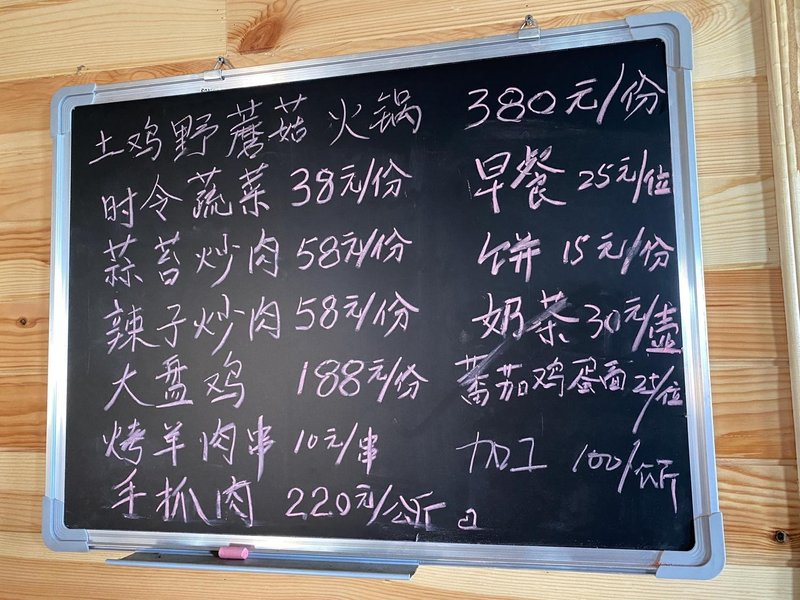 土鸡野蘑菇火锅 380元/份
时令蔬菜 38元/份
早餐 25元/位
蒜苔炒肉 58元/份
饼 15元/份
辣子炒肉 58元/份
奶茶 30元/壶
大盘鸡 188元/份
蕃茄鸡蛋面 25/位
烤羊肉串 10元/串
加工 100/公斤
手抓肉 220元/公斤